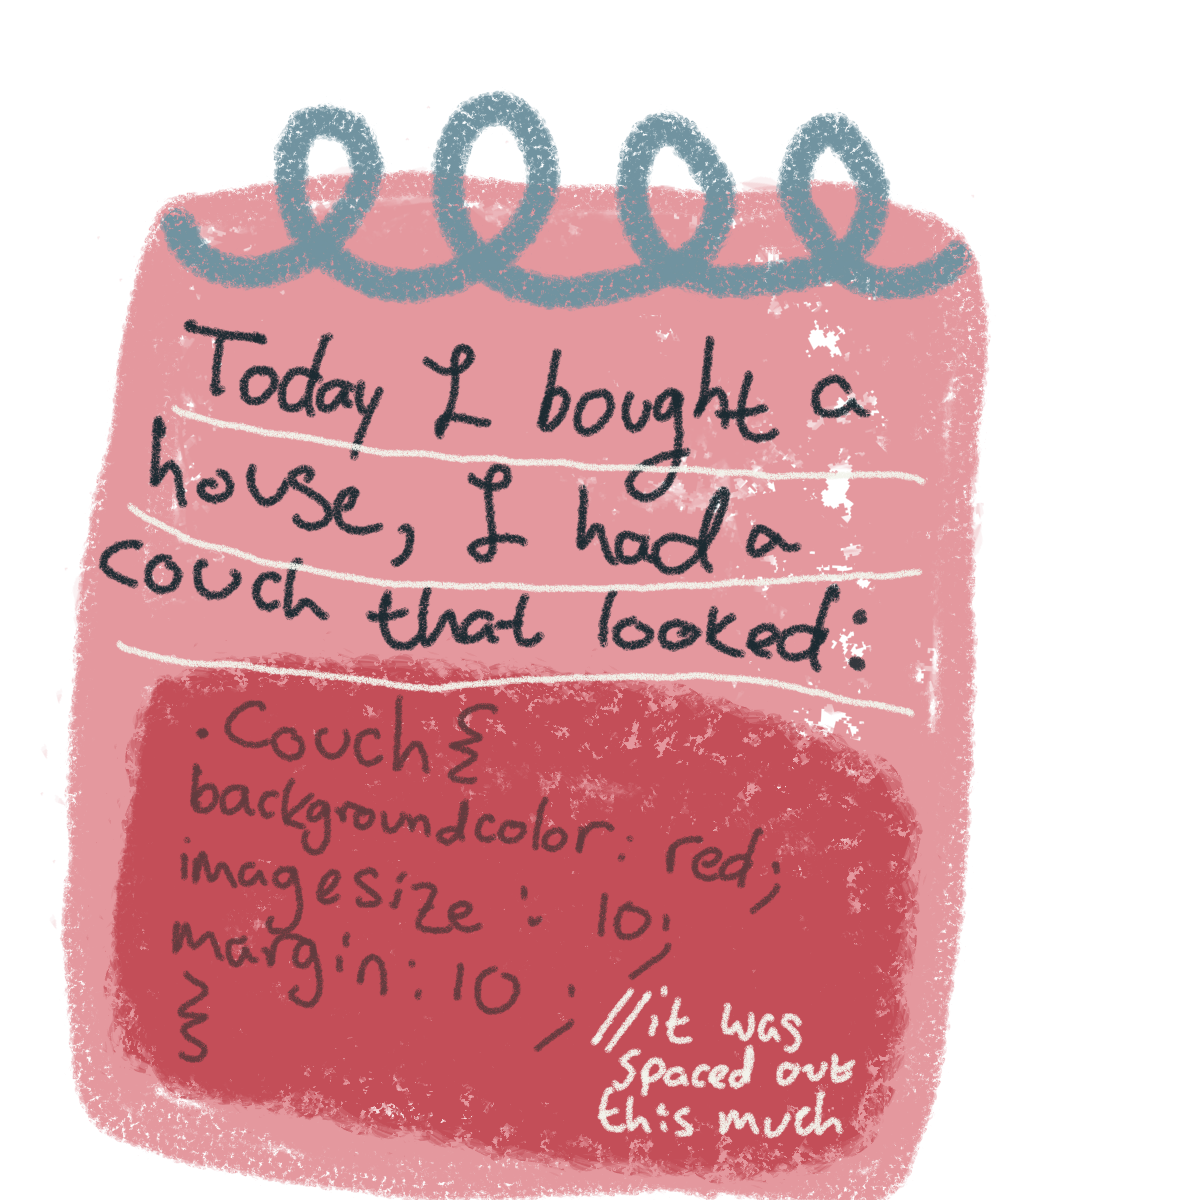 Today I bought a
house, I had a
couch that looked:
.Couch{
backgroundcolor: red;
imagesize: 10;
margin: 10;
}
//it was
spaced out
this much